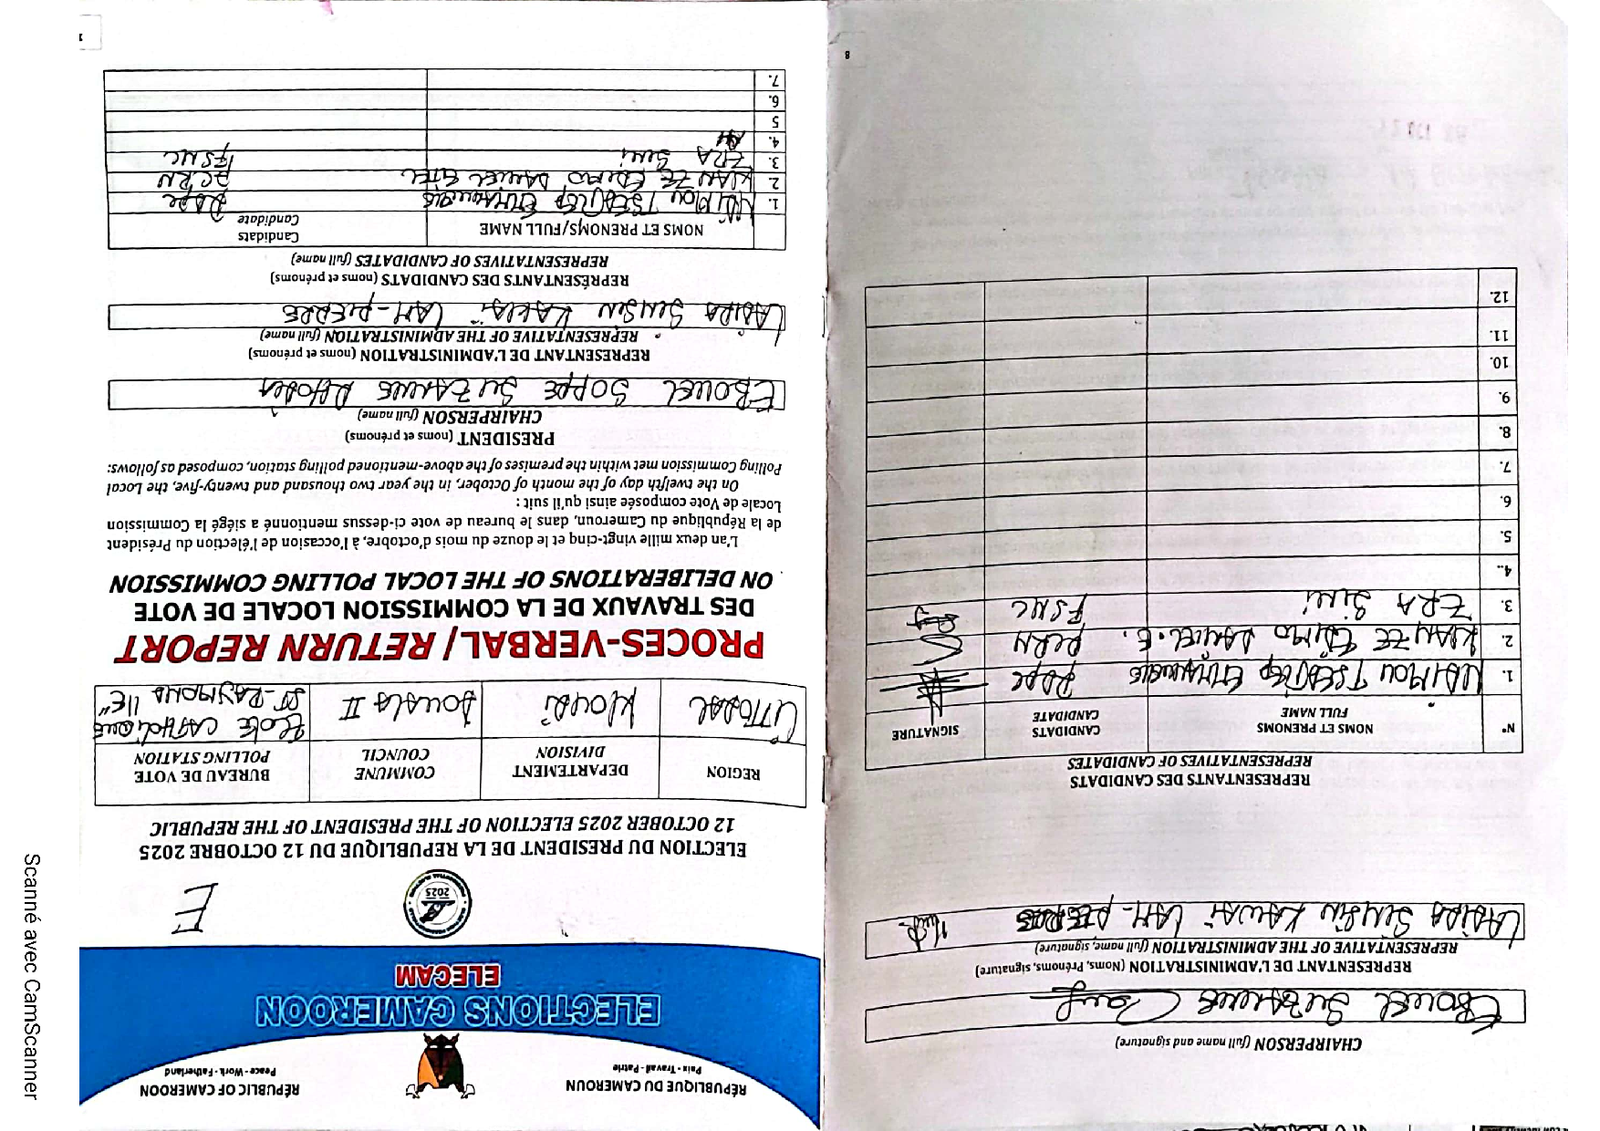 RÉPUBLIQUE DU CAMEROUN
Paix - Travail - Patrie
RÉPUBLIC OF CAMEROON
Peace - Work - Fatherland
ELECTIONS CAMEROON
ELECAM
2025
E
ELECTION DU PRESIDENT DE LA REPUBLIQUE DU 12 OCTOBRE 2025
12 OCTOBER 2025 ELECTION OF THE PRESIDENT OF THE REPUBLIC
REGION
DEPARTEMENT
DIVISION
COMMUNE
COUNCIL
BUREAU DE VOTE
POLLING STATION
LITTORAL
WOURI
DOUALA II
ECOLE CATHOLIQUE
ST-RAYMOND "E"
PROCES-VERBAL / RETURN REPORT
DES TRAVAUX DE LA COMMISSION LOCALE DE VOTE
ON DELIBERATIONS OF THE LOCAL POLLING COMMISSION
L'an deux mille vingt-cinq et le douze du mois d'octobre, à l'occasion de l'élection du Président
de la République du Cameroun, dans le bureau de vote ci-dessus mentionné a siégé la Commission
Locale de Vote composée ainsi qu'il suit :
On the twelfth day of the month of October, in the year two thousand and twenty-five, the Local
Polling Commission met within the premises of the above-mentioned polling station, composed as follows:
PRESIDENT (noms et prénoms)
CHAIRPERSON (full name)
EBOUEL SOPPE SUZANNE
REPRESENTANT DE L'ADMINISTRATION (noms et prénoms)
REPRESENTATIVE OF THE ADMINISTRATION (full name)
LAM-PIERRE
REPRÉSENTANTS DES CANDIDATS (noms et prénoms)
REPRESENTATIVES OF CANDIDATES (full name)
NOMS ET PRENOMS/FULL NAME
Candidats
Candidate
1. EMMANUEL RDPC
2. EDIMO DANIEL PCRN
3. FSNC
4.
5
6.
7.
CHAIRPERSON (full name and signature)
EBOUEL SUZANNE
REPRESENTANT DE L'ADMINISTRATION (Noms, Prénoms, signature)
REPRESENTATIVE OF THE ADMINISTRATION (full name, signature)
LAM-PIERRE
REPRESENTANTS DES CANDIDATS
REPRESENTATIVES OF CANDIDATES
N°
NOMS ET PRENOMS
FULL NAME
CANDIDATS
CANDIDATE
SIGNATURE
1. EMMANUEL RDPC
2. EDIMO DANIEL.E. PCRN
3. FSNC
4..
5.
6.
7.
8.
9.
10.
11.
12.
8
Scanné avec CamScanner